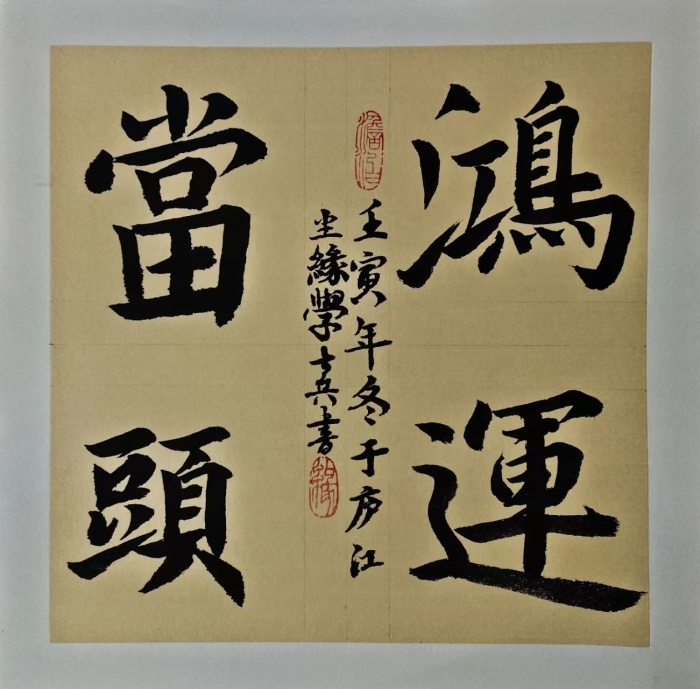 鴻運
當頭
壬寅年冬于庐江
坐緣學士兵書